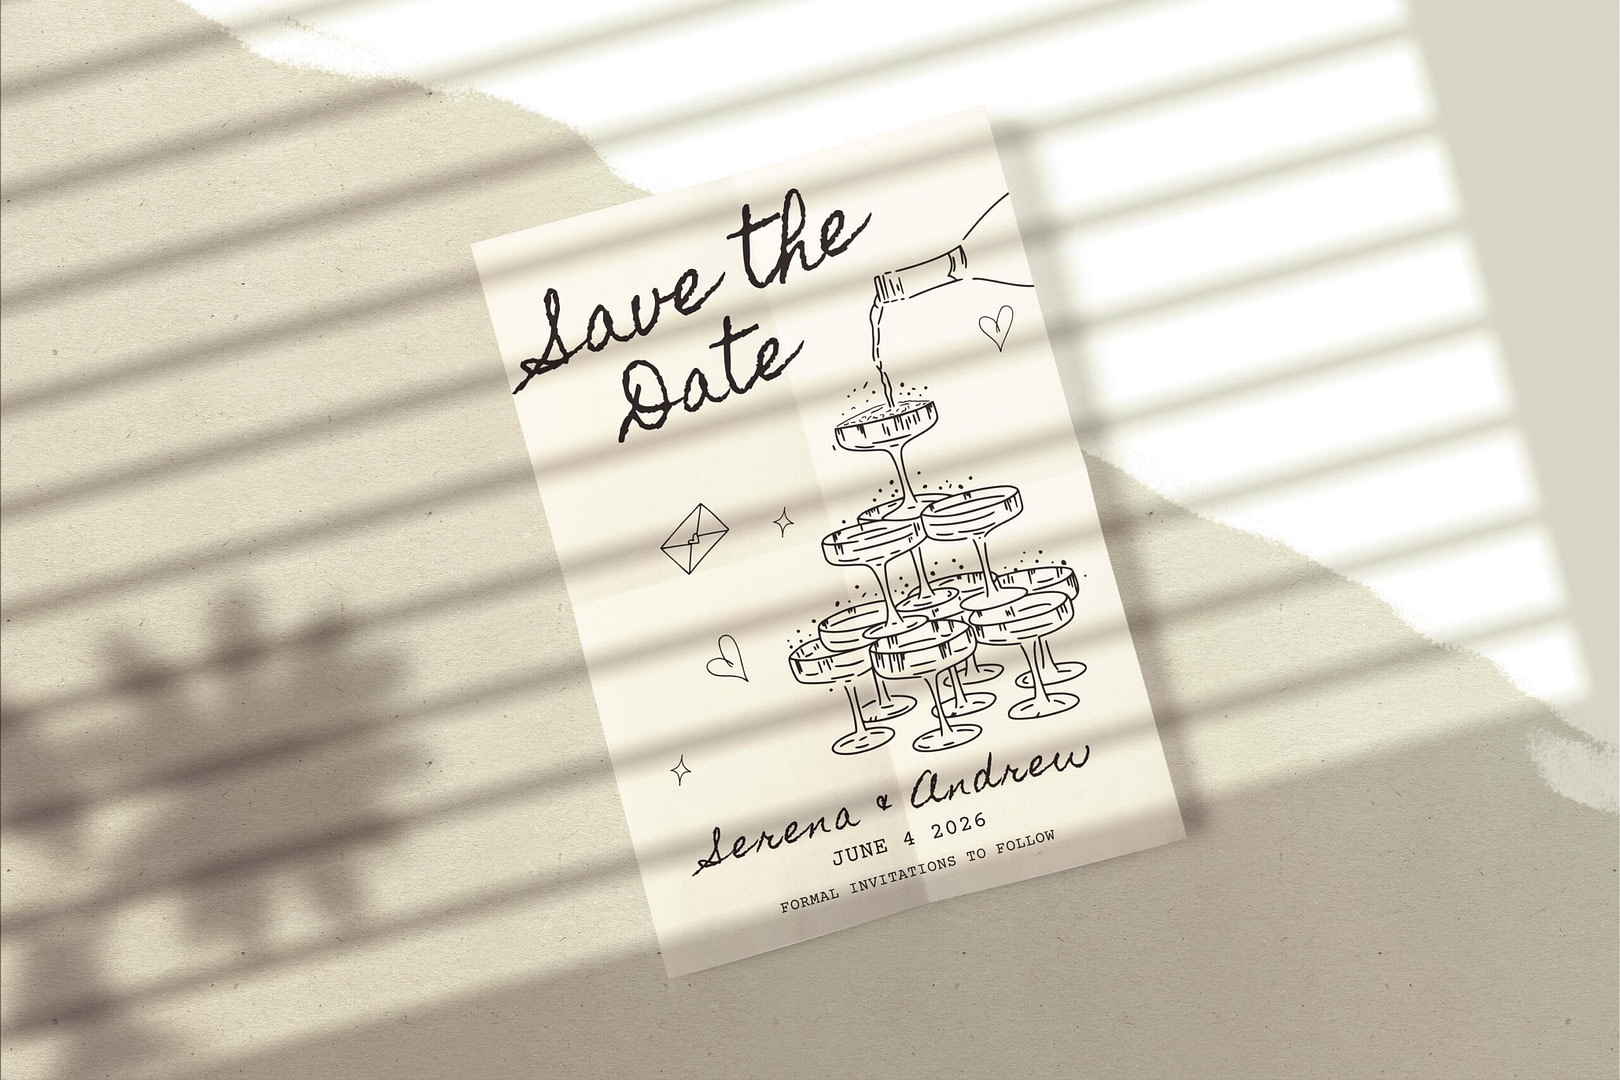 Save the
Date
Serena & Andrew
JUNE 4 2026
FORMAL INVITATIONS TO FOLLOW